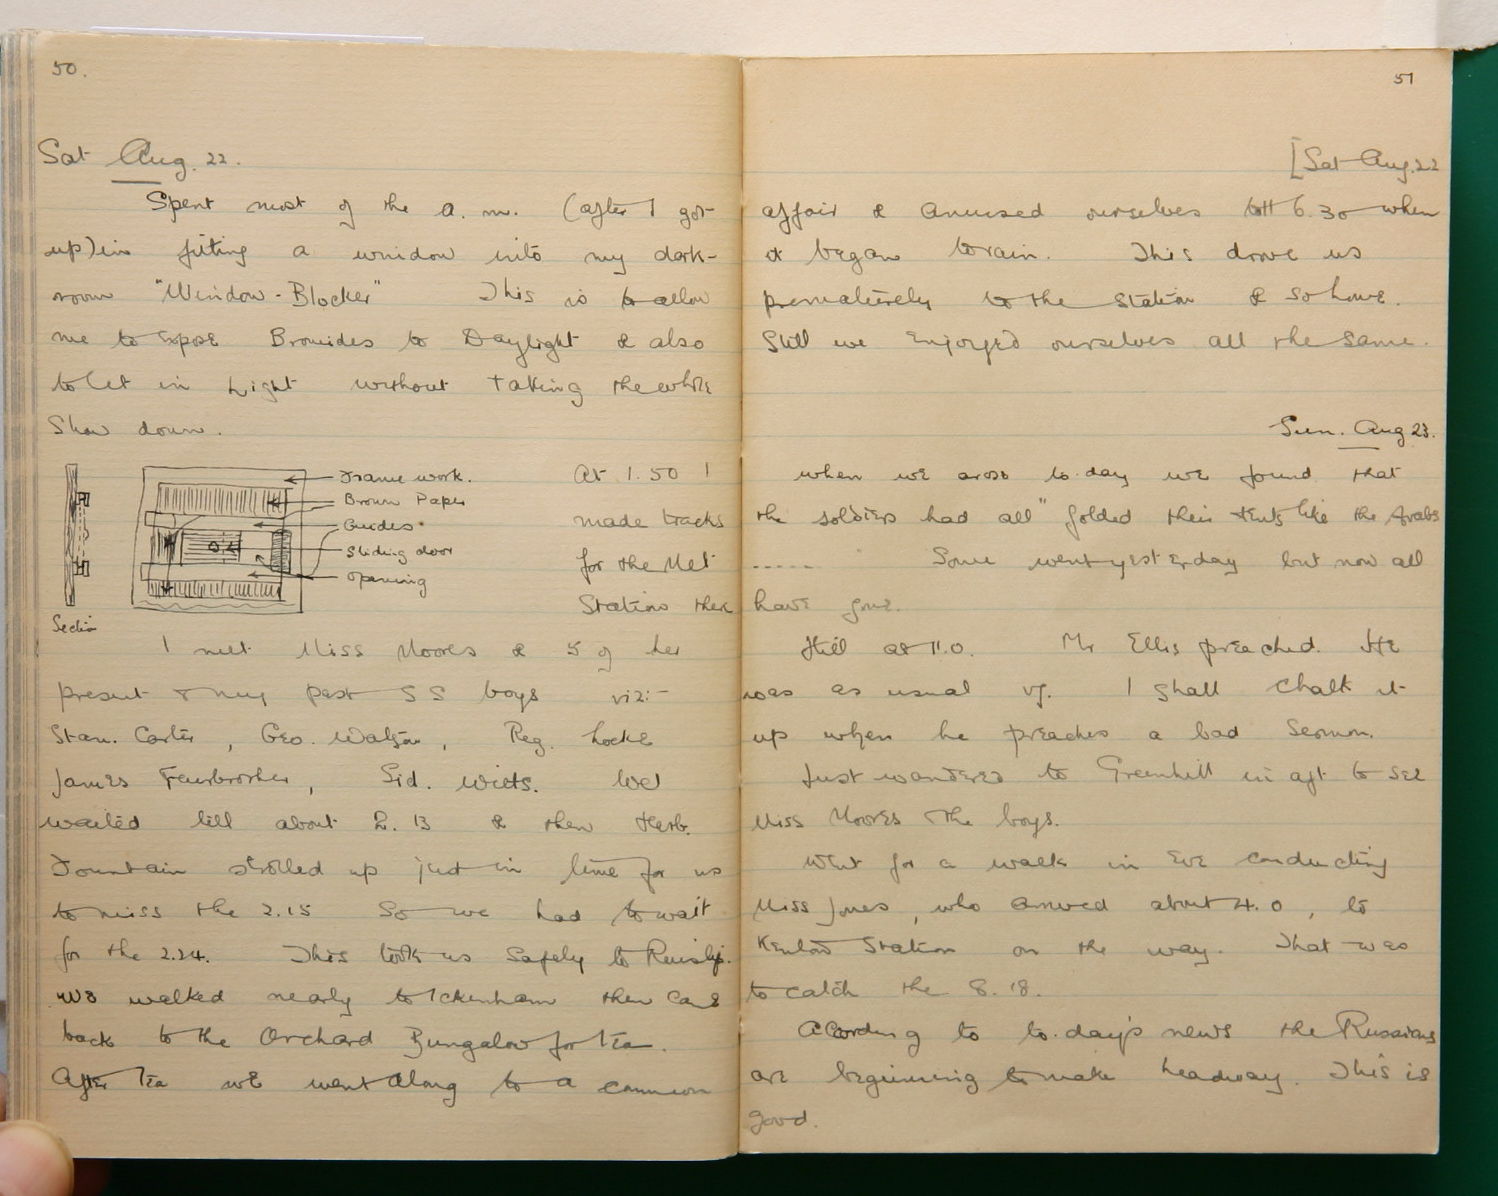 50.
Sat Aug. 22.
Spent most of the a.m. (after I got
up) in fitting a window into my dark-
room "Window-Blocker" This is to allow
me to expose Bromides to Daylight & also
to let in Light without taking the whole
Show down.
Frame work.
Brown Paper
Guides
Sliding door
opening
Section
At 1.50 I
made tracks
for the Met
Station there
I met Miss Moores & 5 of her
present & my past SS boys viz:-
Stan. Carter, Geo. Watson, Reg. Locke
James Fairbrother, Sid. Witts. We
waited till about 2.13 & then Herb.
Fountain strolled up just in time for us
to miss the 2.15 So we had to wait
for the 2.24. This took us Safely to Ruislip.
We walked nearly to Ickenham then came
back to the Orchard Bungalow for Tea.
After Tea we went along to a common
51
[Sat Aug. 22
affair & amused ourselves till 6.30 when
it began to rain. This drove us
prematurely to the Station & so home.
Still we Enjoyed ourselves all the same.
Sun. Aug 23.
when we arose to-day we found that
the soldiers had all "folded their tents like the Arabs
..... Some went yesterday but now all
have gone.
Hill at 11.0. Mr Ellis preached. He
was as usual vg. I shall chalk it
up when he preaches a bad Sermon.
Just wandered to Greenhill in aft to see
Miss Moores & the boys.
Went for a walk in Eve conducting
Miss Jones, who arrived about 4.0, to
Kenton Station on the way. That was
to catch the 8.18.
According to to-day's news the Russians
are beginning to make headway. This is
good.